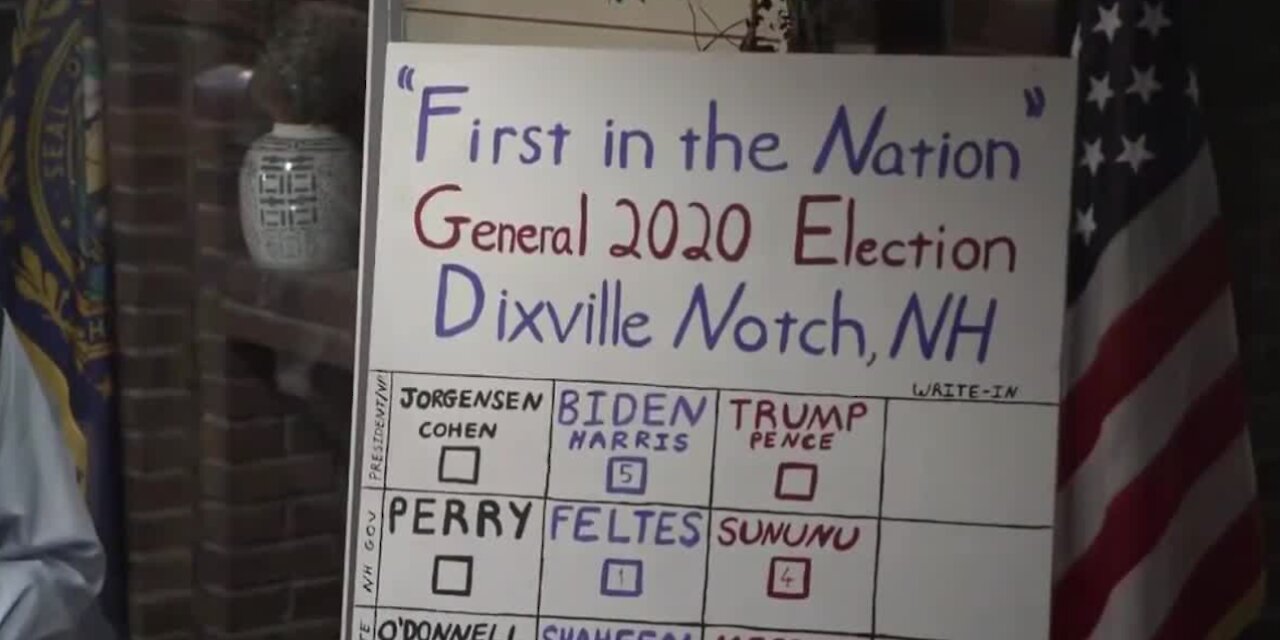 "First in the Nation"
General 2020 Election
Dixville Notch, NH
WRITE-IN
PRESIDENT/VP
JORGENSEN BIDEN TRUMP
COHEN HARRIS PENCE
5
NH GOV
PERRY FELTES SUNUNU
1 4
O'DONNELL
SEAL